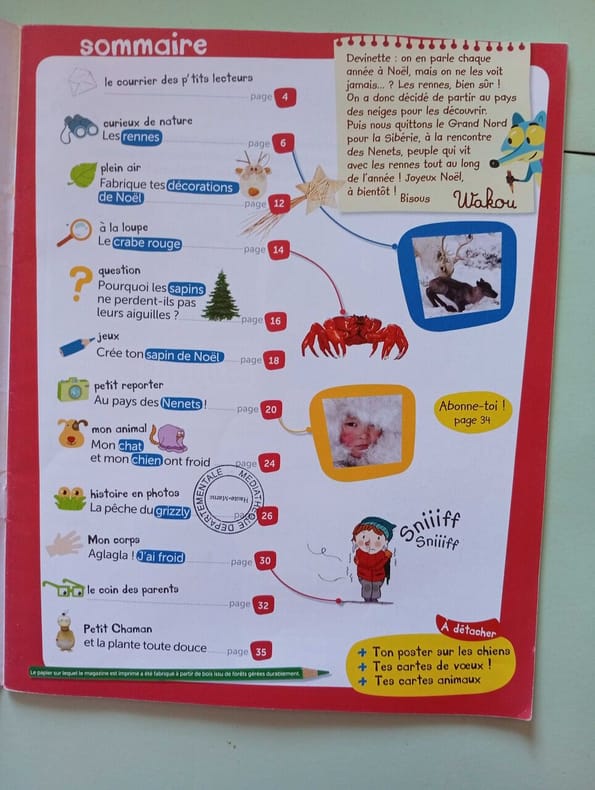 sommaire
le courrier des p'tits lecteurs
page 4
curieux de nature
Les rennes
page 6
plein air
Fabrique tes décorations
de Noël
page 12
à la loupe
Le crabe rouge
page 14
question
Pourquoi les sapins
ne perdent-ils pas
leurs aiguilles ?
page 16
jeux
Crée ton sapin de Noël
page 18
petit reporter
Au pays des Nenets !
page 20
mon animal
Mon chat
et mon chien ont froid
page 24
histoire en photos
La pêche du grizzly
page 26
Mon corps
Aglagla ! J'ai froid
page 30
le coin des parents
page 32
Petit Chaman
et la plante toute douce
page 35
Le papier sur lequel le magazine est imprimé a été fabriqué à partir de bois issu de forêts gérées durablement.
Devinette : on en parle chaque
année à Noël, mais on ne les voit
jamais... ? Les rennes, bien sûr !
On a donc décidé de partir au pays
des neiges pour les découvrir.
Puis nous quittons le Grand Nord
pour la Sibérie, à la rencontre
des Nenets, peuple qui vit
avec les rennes tout au long
de l'année ! Joyeux Noël,
à bientôt !
Bisous
Wakou
Abonne-toi !
page 34
MEDIATHEQUE DEPARTEMENTALE
Haute-Marne
Sniiiff
Sniiiff
À détacher
+ Ton poster sur les chiens
+ Tes cartes de vœux !
+ Tes cartes animaux